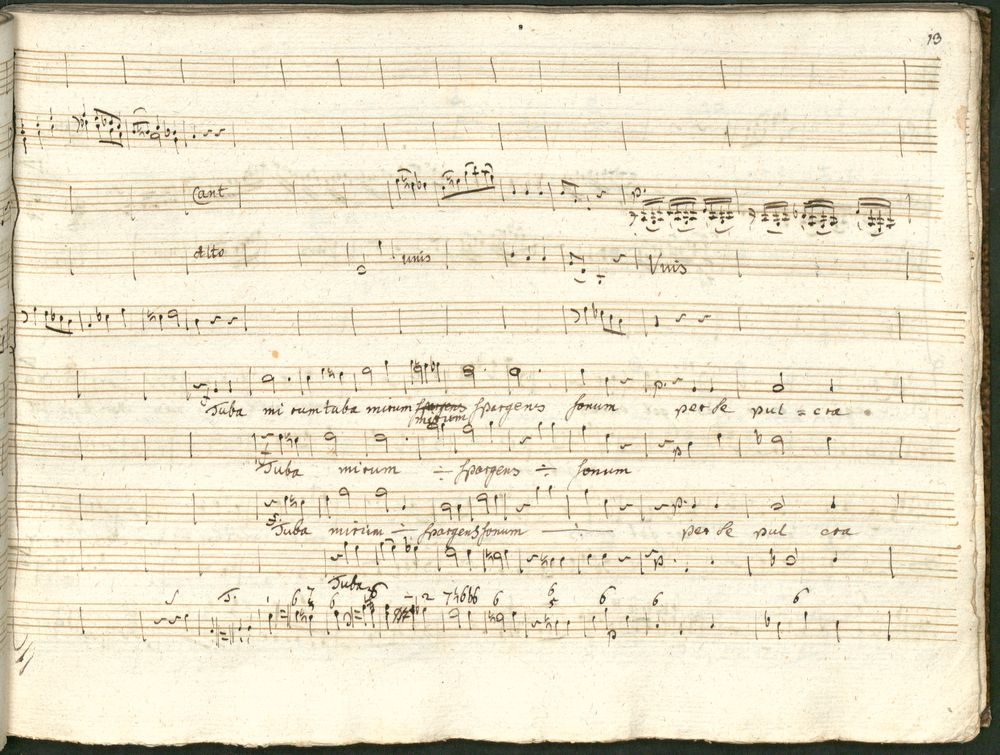 13
Cant
Alto
unis
Unis
Tuba mirum tuba mirum spargens spargens sonum per se pul = cra
mirum
Tuba mirum ÷ spargens ÷ sonum
Tuba mirum ÷ spargens sonum ÷ per se pul cra
Tuba
S T. 6 7 6 6 2 7 6 6 6 6 5 6 6 6